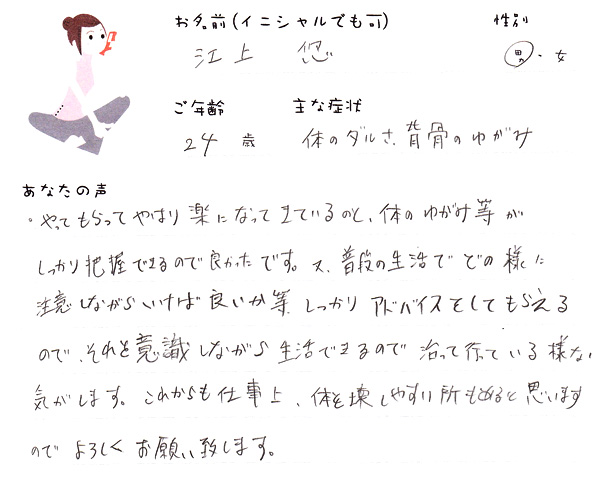 お名前(イニシャルでも可) 性別
江上 悠 男・女
ご年齢 主な症状
24 歳 体のダルさ、背骨のゆがみ
あなたの声
・やってもらってやはり楽になってきているのと、体のゆがみ等が
しっかり把握できるので良かったです。又、普段の生活でどの様に
注意しながらいけば良いか等、しっかりアドバイスをしてもらえる
ので、それを意識しながら生活できるので治って行っている様な
気がします。これからも仕事上、体を壊しやすい所もあると思います
のでよろしくお願い致します。